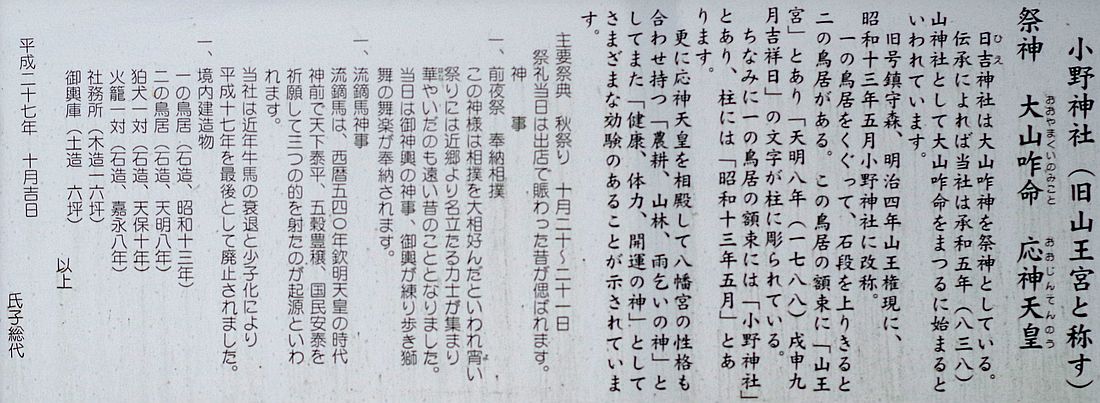 小野神社（旧山王宮と称す）
祭神　大山咋命　応神天皇
おおやまくいのみこと　おおじんてんのう
日吉神社は大山咋神を祭神としている。
ひえ
伝承によれば当社は承和五年（八三八）
山神社として大山咋命をまつるに始まると
いわれています。
旧号鎮守森、明治四年山王権現に、
昭和十三年五月小野神社に改称。
一の鳥居をくぐって、石段を上りきると
二の鳥居がある。この鳥居の額束に「山王
宮」とあり「天明八年（一七八八）戌申九
月吉祥日」の文字が柱に彫られている。
ちなみに一の鳥居の額束には「小野神社」
とあり、柱には「昭和十三年五月」とあ
ります。
更に応神天皇を相殿して八幡宮の性格も
合わせ持つ「農耕、山林、雨乞いの神」と
してまた「健康、体力、開運の神」として
さまざまな効験のあることが示されていま
す。
主要祭典　秋祭り　十月二十〜二十一日
祭礼当日は出店で賑わった昔が偲ばれます。
神　事
一、前夜祭　奉納相撲
この神様は相撲を大相好んだといわれ宵い
祭りには近郷より名立たる力士が集まり
華やいだのも遠い昔のこととなりました。
当日は御神輿の神事、御輿が練り歩き獅
舞の舞楽が奉納されます。
一、流鏑馬神事
流鏑馬は、西暦五四〇年欽明天皇の時代
神前で天下泰平、五穀豊穣、国民安泰を
祈願して三つの的を射たのが起源といわ
れます。
当社は近年牛馬の衰退と少子化により
平成十七年を最後として廃止されました。
一、境内建造物
一の鳥居（石造、昭和十三年）
二の鳥居（石造、天明八年）
狛犬一対（石造、天保十年）
火籠一対（石造、嘉永八年）
社務所（木造一六坪）
御輿庫（土造　六坪）
以上
平成二十七年　十月吉日
氏子総代